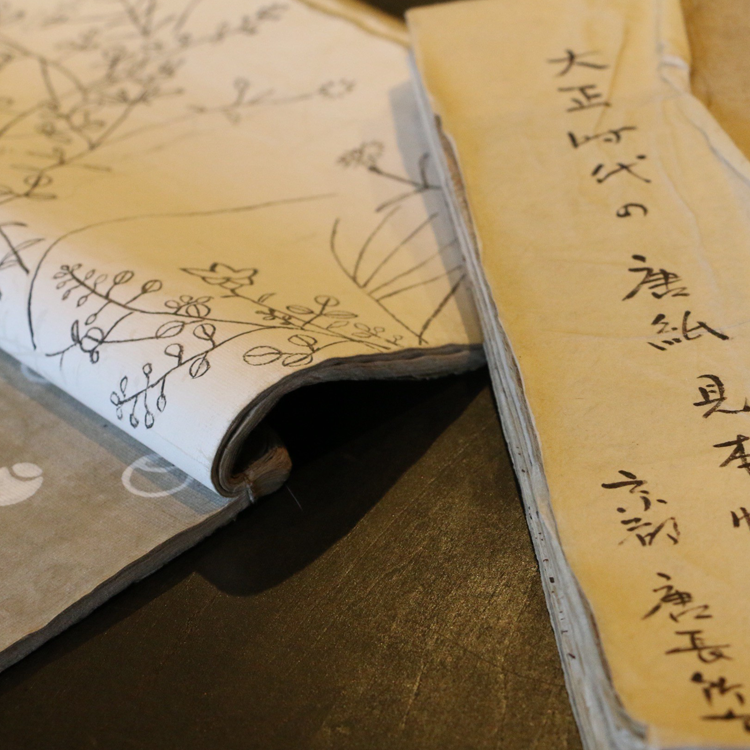 大正時代の唐紙見本
京都唐長